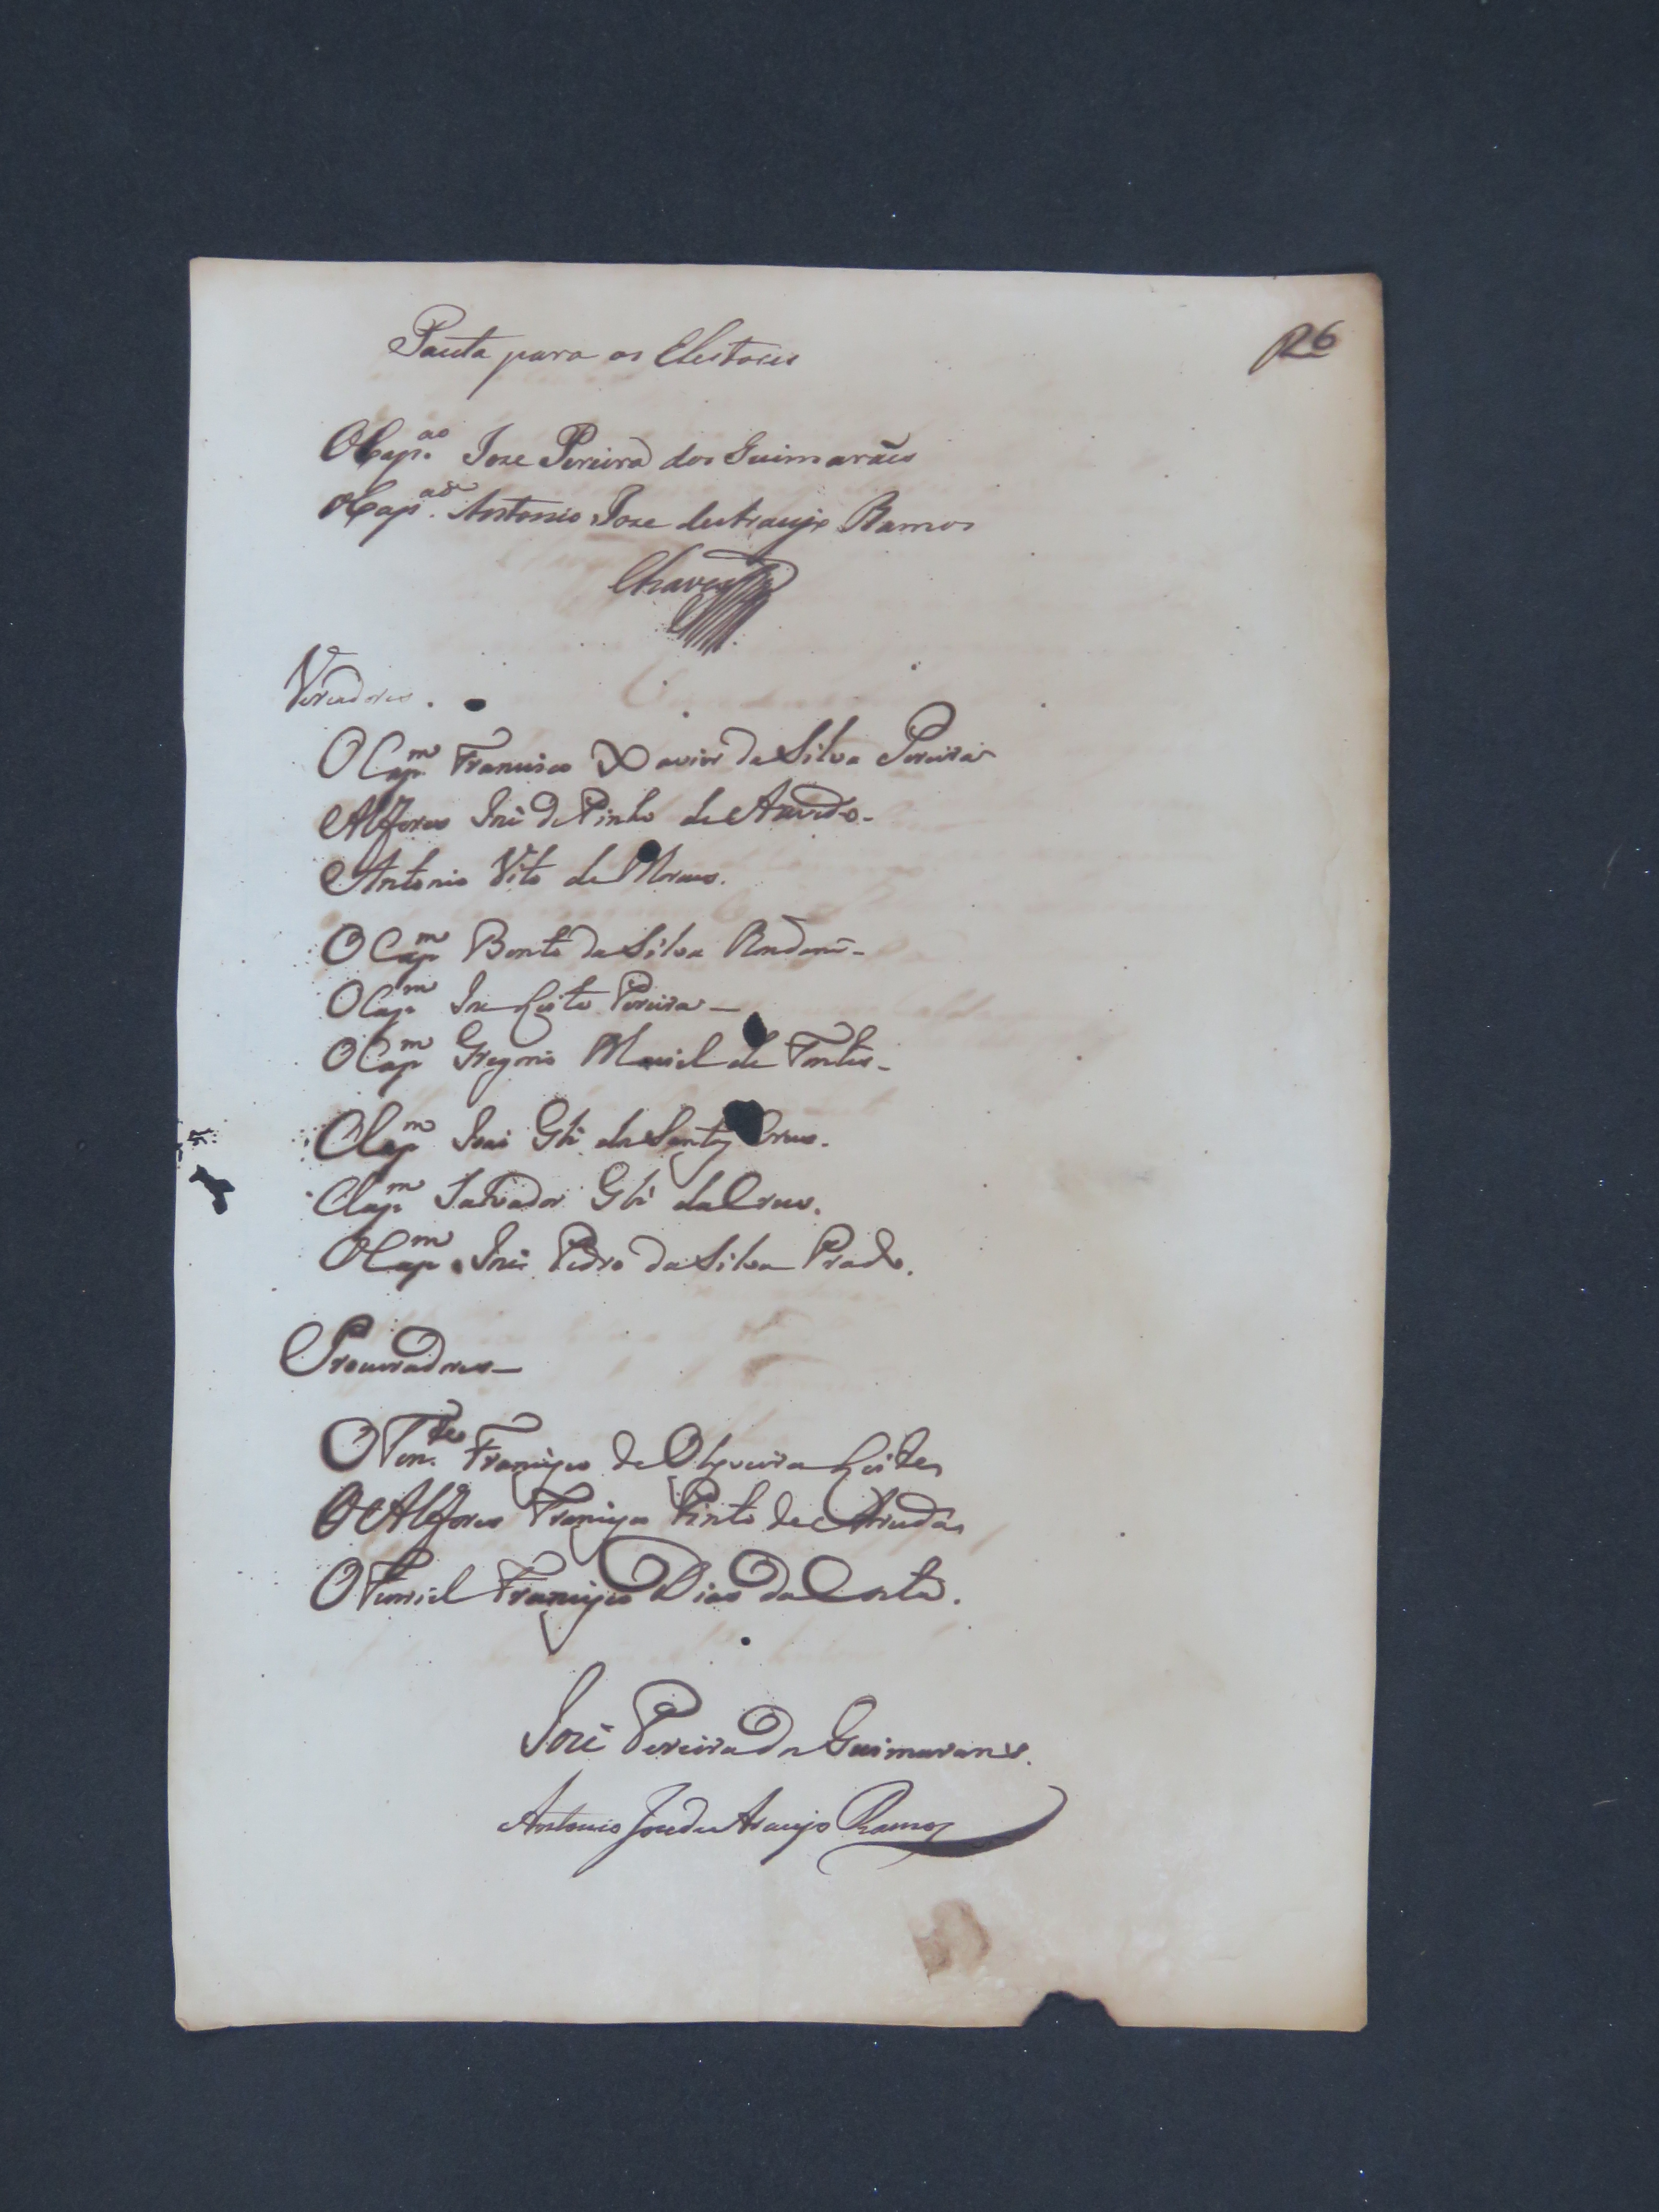 Pauta para os Eleitores
26
O Cap.ao Joze Pereira dos Guimarães
O Cap.ao Antonio Joze de Araujo Ramos
Chaves
Vereadores.
O Capm Francisco Xavier da Silva Pereira
Alferes José de Pinho de Azevedo.
Antonio Vito de Moraes.
O Capm Bento da Silva Rondon
O Capm Jze Leite Pereira
O Capm Gregorio Maciel de Fontes
O Capm José Glz' dos Santos Crus.
O Capm Salvador Glz' da Crus.
O Capm José Pedro da Silva Prado.
Procuradores
O Ten.te Francisco de Olyveira Leites
O Alferes Francisco Pinto de Arruda
O Furriel Francisco Dias da Costa.
José Pereira dos Guimaraens.
Antonio Jose de Araujo Ramos